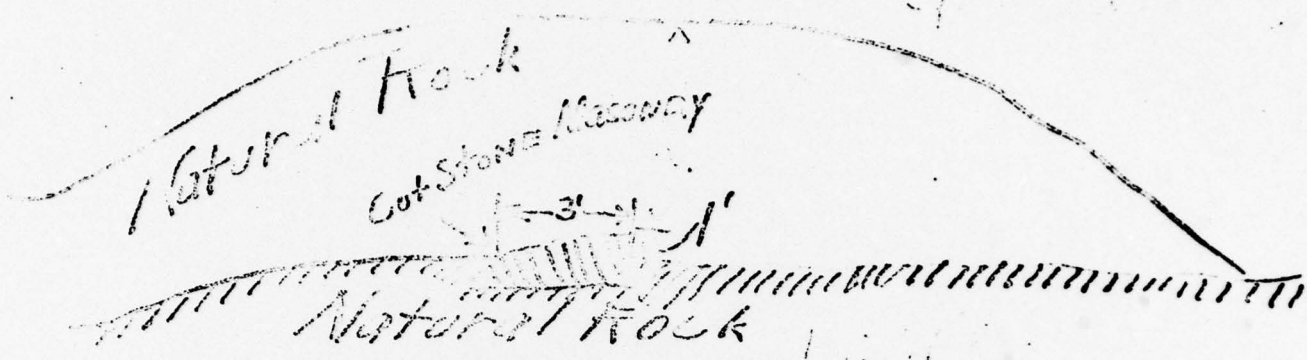 Natural Rock
Cut Stone Masonry
3'
1'
Natural Rock